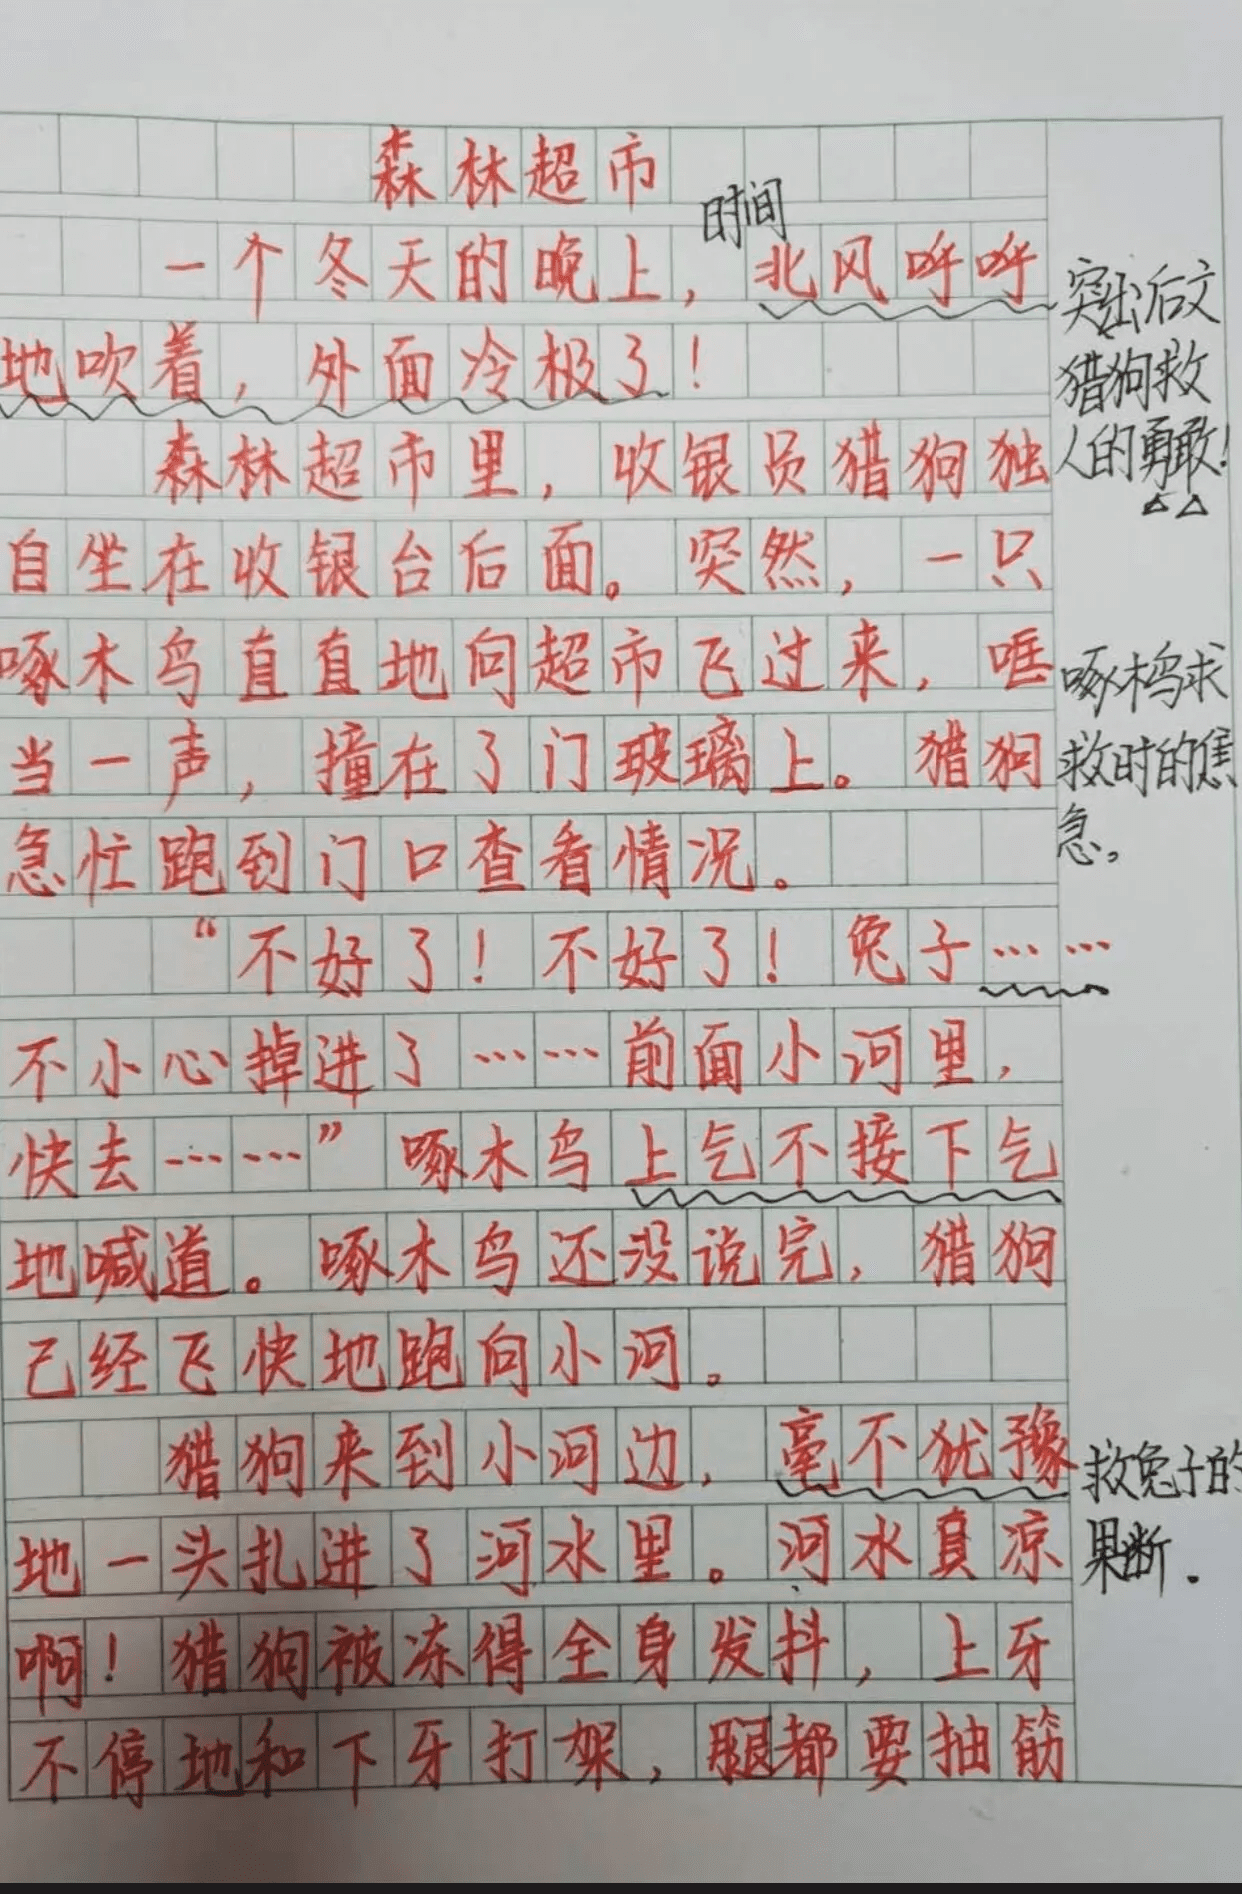 森林超市
时间
一个冬天的晚上，北风呼呼
地吹着，外面冷极了！
突出后文
猎狗救
人的勇敢！
森林超市里，收银员猎狗独
自坐在收银台后面。突然，一只
啄木鸟直直地向超市飞过来，哐
当一声，撞在了门玻璃上。猎狗
急忙跑到门口查看情况。
啄木鸟求
救时的焦
急。
“不好了！不好了！兔子……
不小心掉进了……前面小河里，
快去……”啄木鸟上气不接下气
地喊道。啄木鸟还没说完，猎狗
已经飞快地跑向小河。
猎狗来到小河边，毫不犹豫
地一头扎进了河水里。河水真凉
啊！猎狗被冻得全身发抖，上牙
不停地和下牙打架，腿都要抽筋
救兔子的
果断.